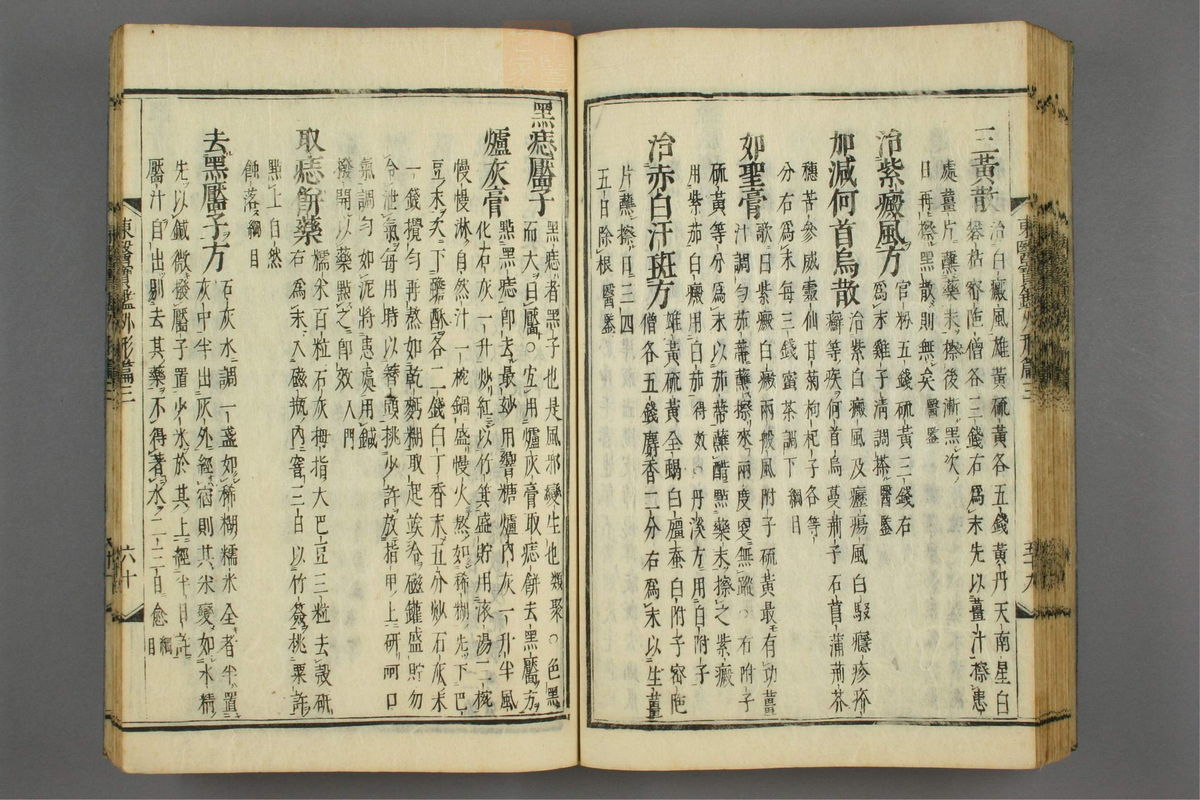 三黃散 治白癜風雄黃硫黃各五錢黃丹天南星白
礬枯密陁僧各三錢右爲末先以薑汁擦患
處薑片蘸藥末擦後漸黑次
日再擦黑散則無矣 醫鑑
治紫癜風方 官粉五錢硫黃三錢右
爲末雞子淸調搽 醫鑑
加減何首烏散 治紫白癜風及癧瘍風白駁癮疹疥
癬等疾何首烏蔓荊子石菖蒲荊芥
穗苦參威靈仙甘菊枸杞子各等
分右爲末每三錢蜜茶調下 綱目
如聖膏 歌曰紫癜白癜兩般風附子硫黃最有功薑
汁調勻茄蔕蘸擦來兩度更無蹤○右附子
硫黃等分爲末以茄蔕蘸醋點藥末擦之紫癜
用紫茄白癜用白茄 得效 丹溪方用白附子
治赤白汗斑方 雄黃硫黃全蝎白殭蚕白附子密陁
僧各五錢麝香二分右爲末以生薑
片蘸擦日三四
五日除根 醫鑑
東醫寶鑑外形篇三 五十九
黑痣靨子 黑痣者黑子也是風邪變生也 類聚 ○色黑
而大曰靨○宜用爐灰膏取痣餠去黑靨方
爐灰膏 點黑痣卽去最妙用響糖爐內灰一升半風
化石灰一升炒紅以竹箕盛貯用滾湯二椀
慢慢淋自然汁一椀鍋盛慢火熬如稀糊先下巴
豆末次下蟾酥各二錢白丁香末五分炒石灰末
一錢攪勻再熬如乾麪糊取起候冷磁罐盛貯勿
令泄氣每用時以簪頭挑少許放指甲上硏呵口
氣調勻如泥將患處用鍼
撥開以藥點之卽效 入門
取痣餠藥 糯米百粒石灰拇指大巴豆三粒去殼硏
右爲末入磁瓶內窨三日以竹簽挑粟許
點上自然
蝕落 綱目
去黑靨子方 石灰水調一盞如稀糊糯米全者半置
灰中半出灰外經宿則其米變如水精
先以鍼微撥靨子置少米於其上經半日許
靨汁自出則去其藥不得著水二三日愈 綱目
東醫寶鑑外形篇三 六十